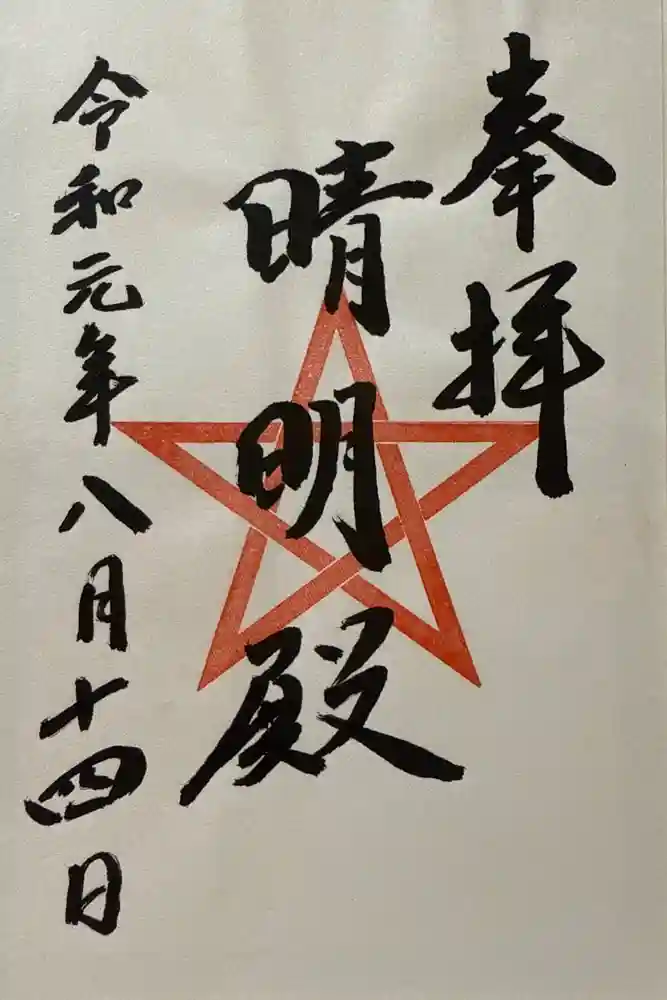 奉拝
晴明殿
令和元年八月十四日